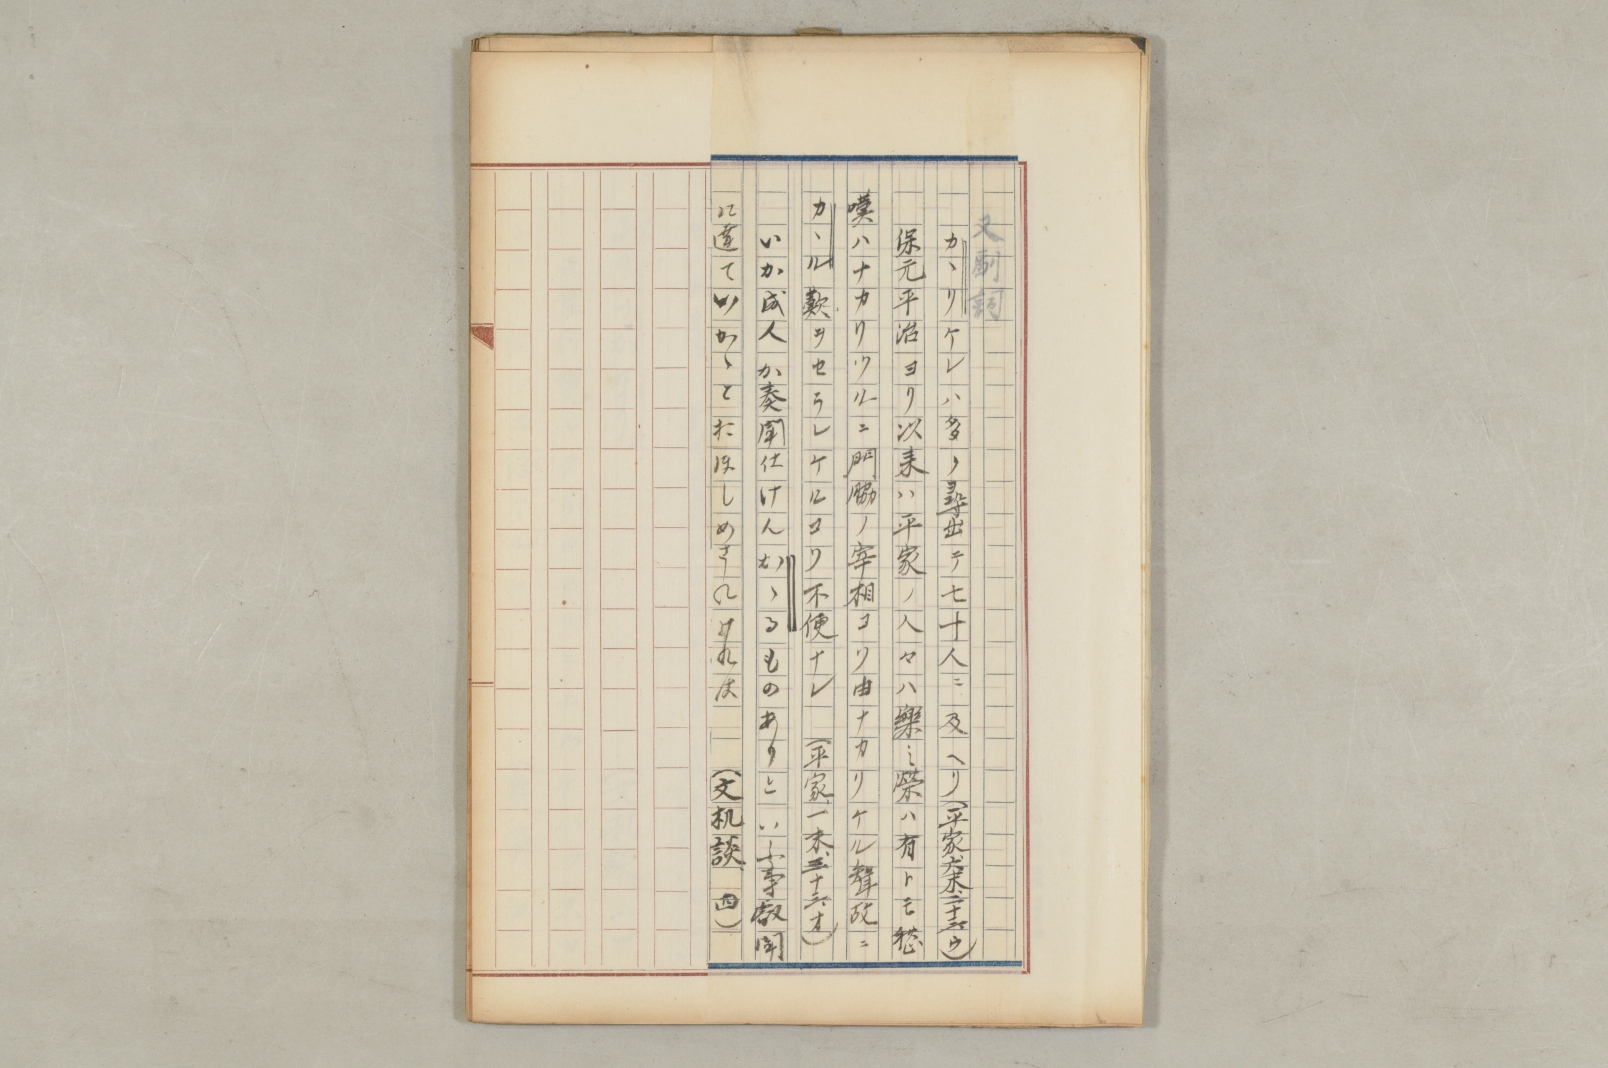 又副詞
カヽリケレハ多ク尋出テ七十人ニ及ヘリ(平家六末、二十六ウ)
保元平治ヨリ以来ハ平家ノ人々ハ樂ミ榮ハ有トモ愁
嘆ハナカリツルニ門脇ノ宰相コソ由ナカリケル聟故ニ
カヽル歎ヲセラレケルコソ不便ナレ (平家、一末、三十六オ)
いか成人か奏聞仕けんかゝるものありといふ事叡聞
に達ていかゝとおほしめされけれは (文机談、四)